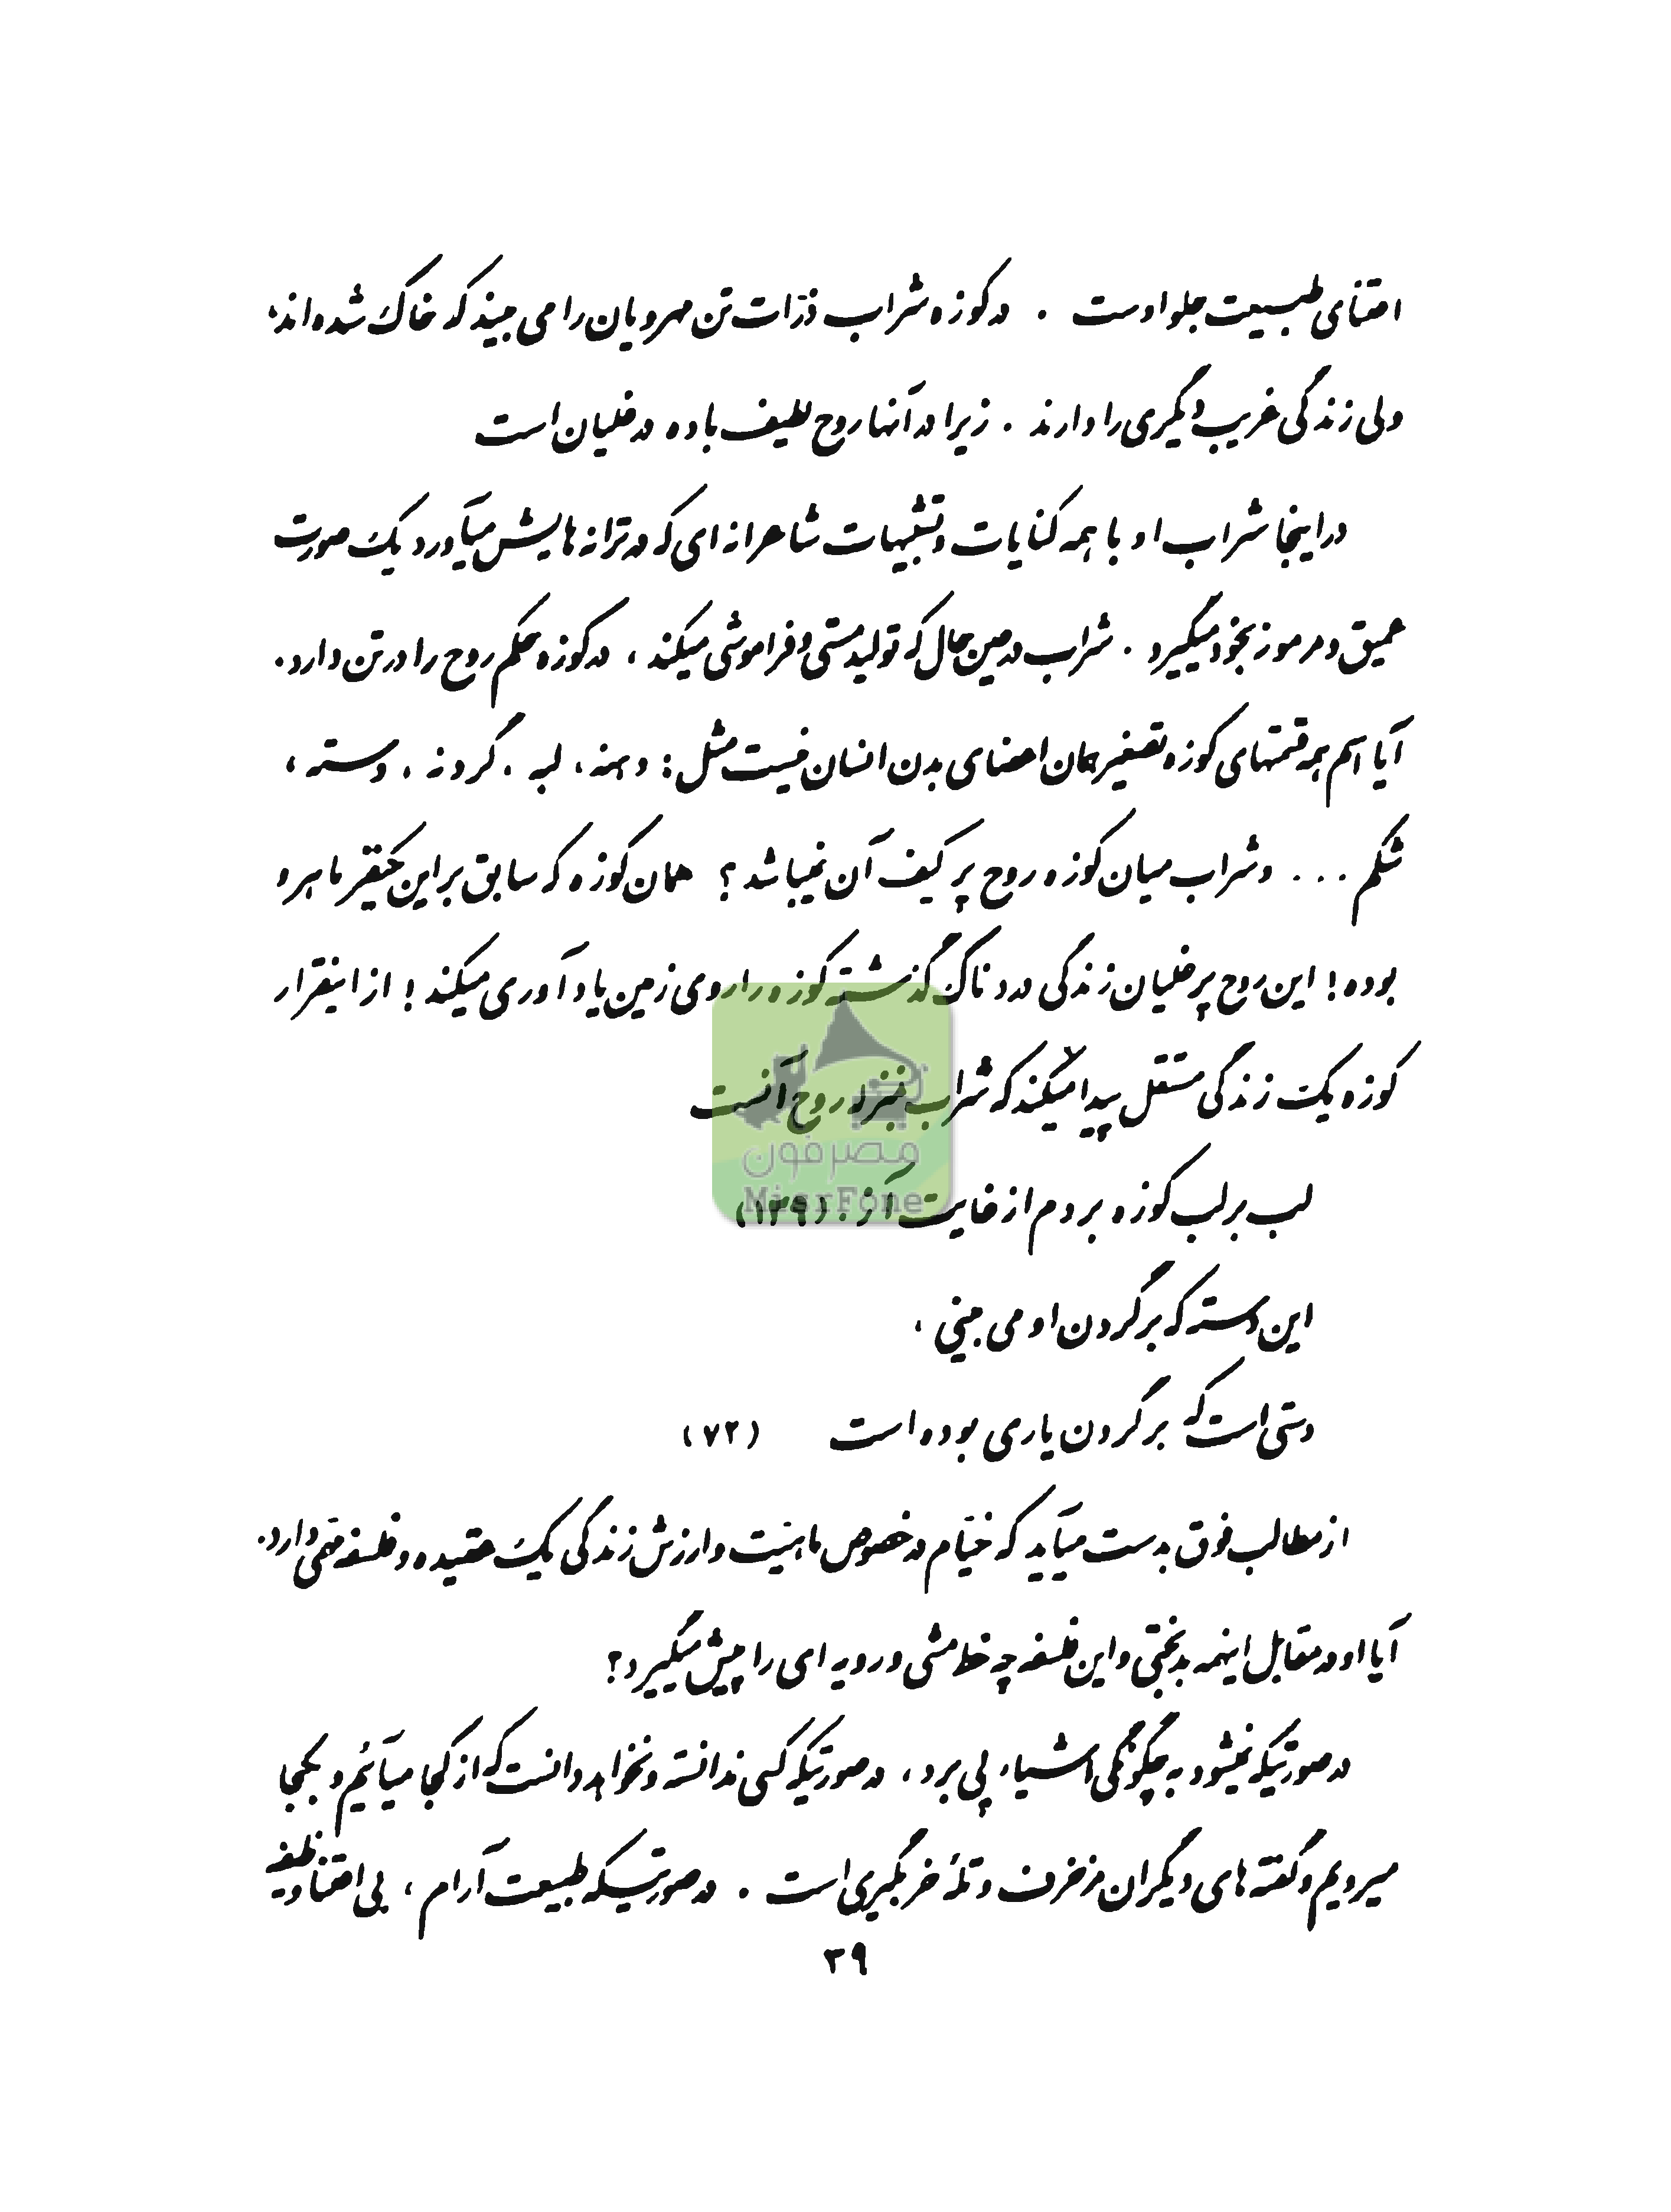 اعتنای طبیعت جلو اوست . در کوزه شراب ذرّات تن مهرویان را می بیند که خاک شده‌اند،
ولی زندگی غریب دیگری را دارند . زیرا در آنها روح لطیف باده در غلیان است
در اینجا شراب او با همه کنایات و تشبیهات شاعرانه ای که در ترانه هایش میآورد یک صورت
عمیق و مرموز بخود میگیرد . شراب در عین حال که تولید مستی و فراموشی میکند ، در کوزه حکم روح را در تن دارد .
آیا اسم همه قسمتهای کوزه تصغیر همان اعضای بدن انسان نیست مثل : دهنه ، لبه ، گردنه ، دسته ،
شکم ... و شراب میان کوزه روح پر کیف آن نمیباشد ؟ همان کوزه که سابق بر این یکنفر ماهرو
بوده ! این روح پر غلیان زندگی دردناک گذشته کوزه را روی زمین یادآوری میکند ! از اینقرار
کوزه یک زندگی مستقل پیدا میکند که شراب بمنزله روح آنست
لب بر لب کوزه بردم از غایت آز : (۱۳۹)
مصرفون
MisrFone
این دسته که بر گردن او می بینی ،
دستی است که بر گردن یاری بوده است (۷۲)
از مطالب فوق بدست میآید که خیّام در خصوص ماهیّت و ارزش زندگی یک عقیده و فلسفه مهمی دارد .
آیا او در مقابل اینهمه بدبختی و این فلسفه چه خط مشی و رویه ای را پیش میگیرد ؟
در صورتیکه نمیشود به چگونگی اشیاء پی برد ، در صورتیکه کسی ندانسته و نخواهد دانست که از کجا میآئیم و بکجا
میرویم و گفته های دیگران مزخرف و تلهٔ خر بگیری است . در صورتیکه طبیعت آرام ، بی اعتنا وظیفه
۳۹